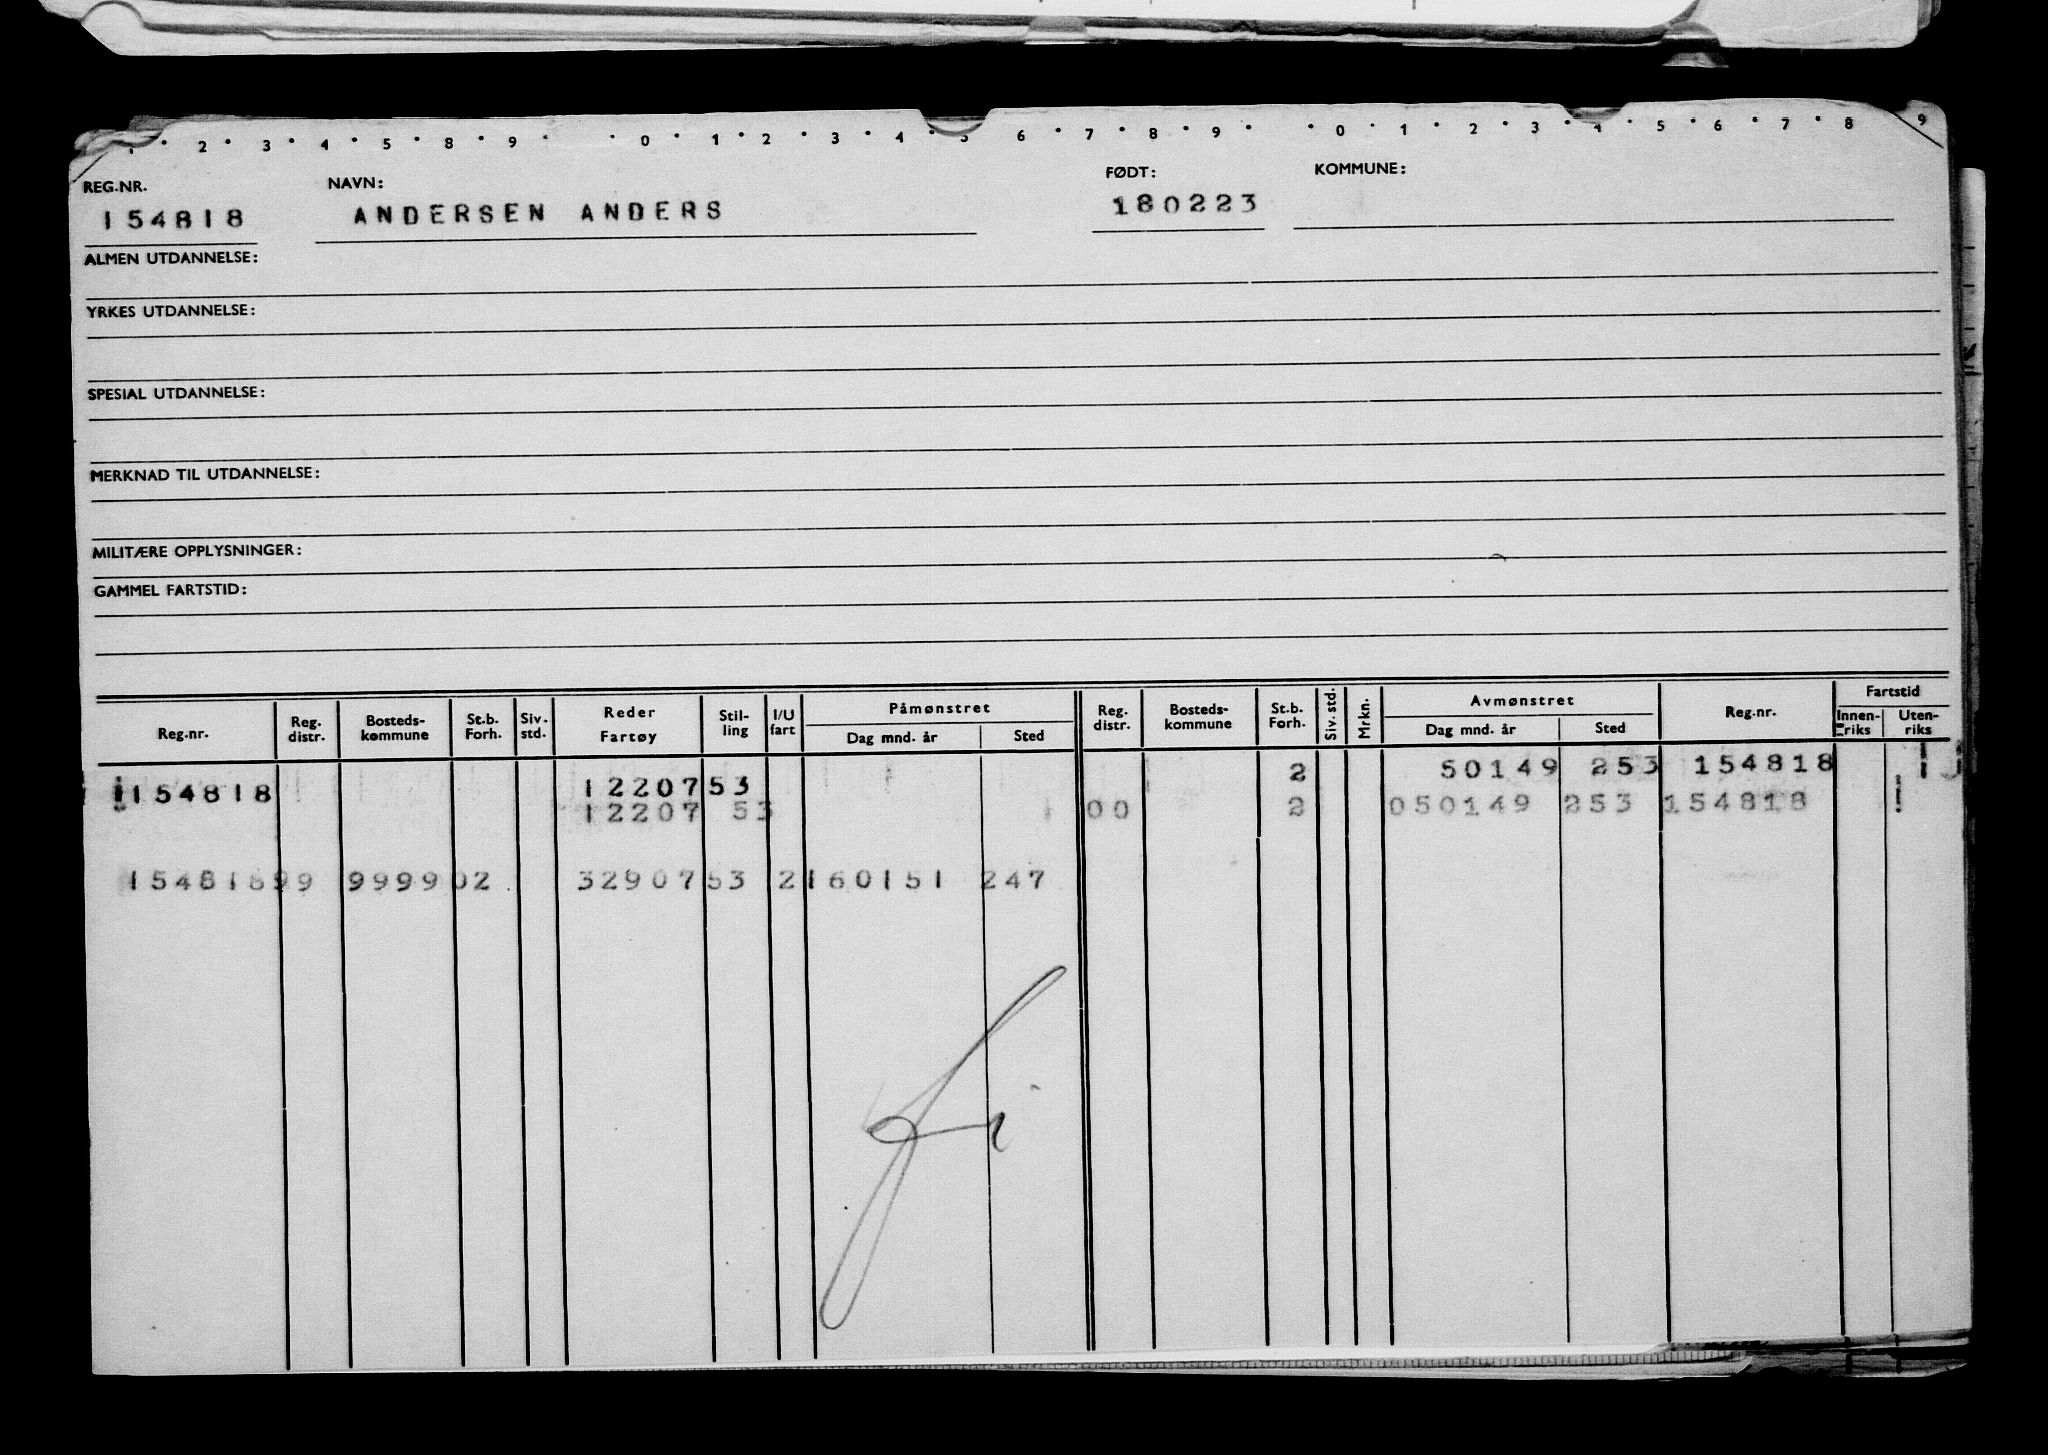 2 3 4 5 8 9 0 1 2 3 4 5 6 7 8 9 0 1 2 3 4 5 6 7 8 9
REG.NR. NAVN: FØDT: KOMMUNE:
154818 ANDERSEN ANDERS 180223
ALMEN UTDANNELSE:
YRKES UTDANNELSE:
SPESIAL UTDANNELSE:
MERKNAD TIL UTDANNELSE:
MILITÆRE OPPLYSNINGER:
GAMMEL FARTSTID:
Reg.nr. Reg. distr. Bosteds-kommune St.b. Forh. Siv. std. Reder Fartøy Stil-ling I/U fart Påmønstret Dag mnd. år Sted Reg. distr. Bosteds-kommune St.b. Forh. Siv. std. Mrkn. Avmønstret Dag mnd. år Sted Reg.nr. Fartstid Innen-riks Uten-riks
154818 12207 53 2 50149 253 154818
12207 53 00 2 050149 253 154818
154818 99 9999 02 32907 53 2 160151 247